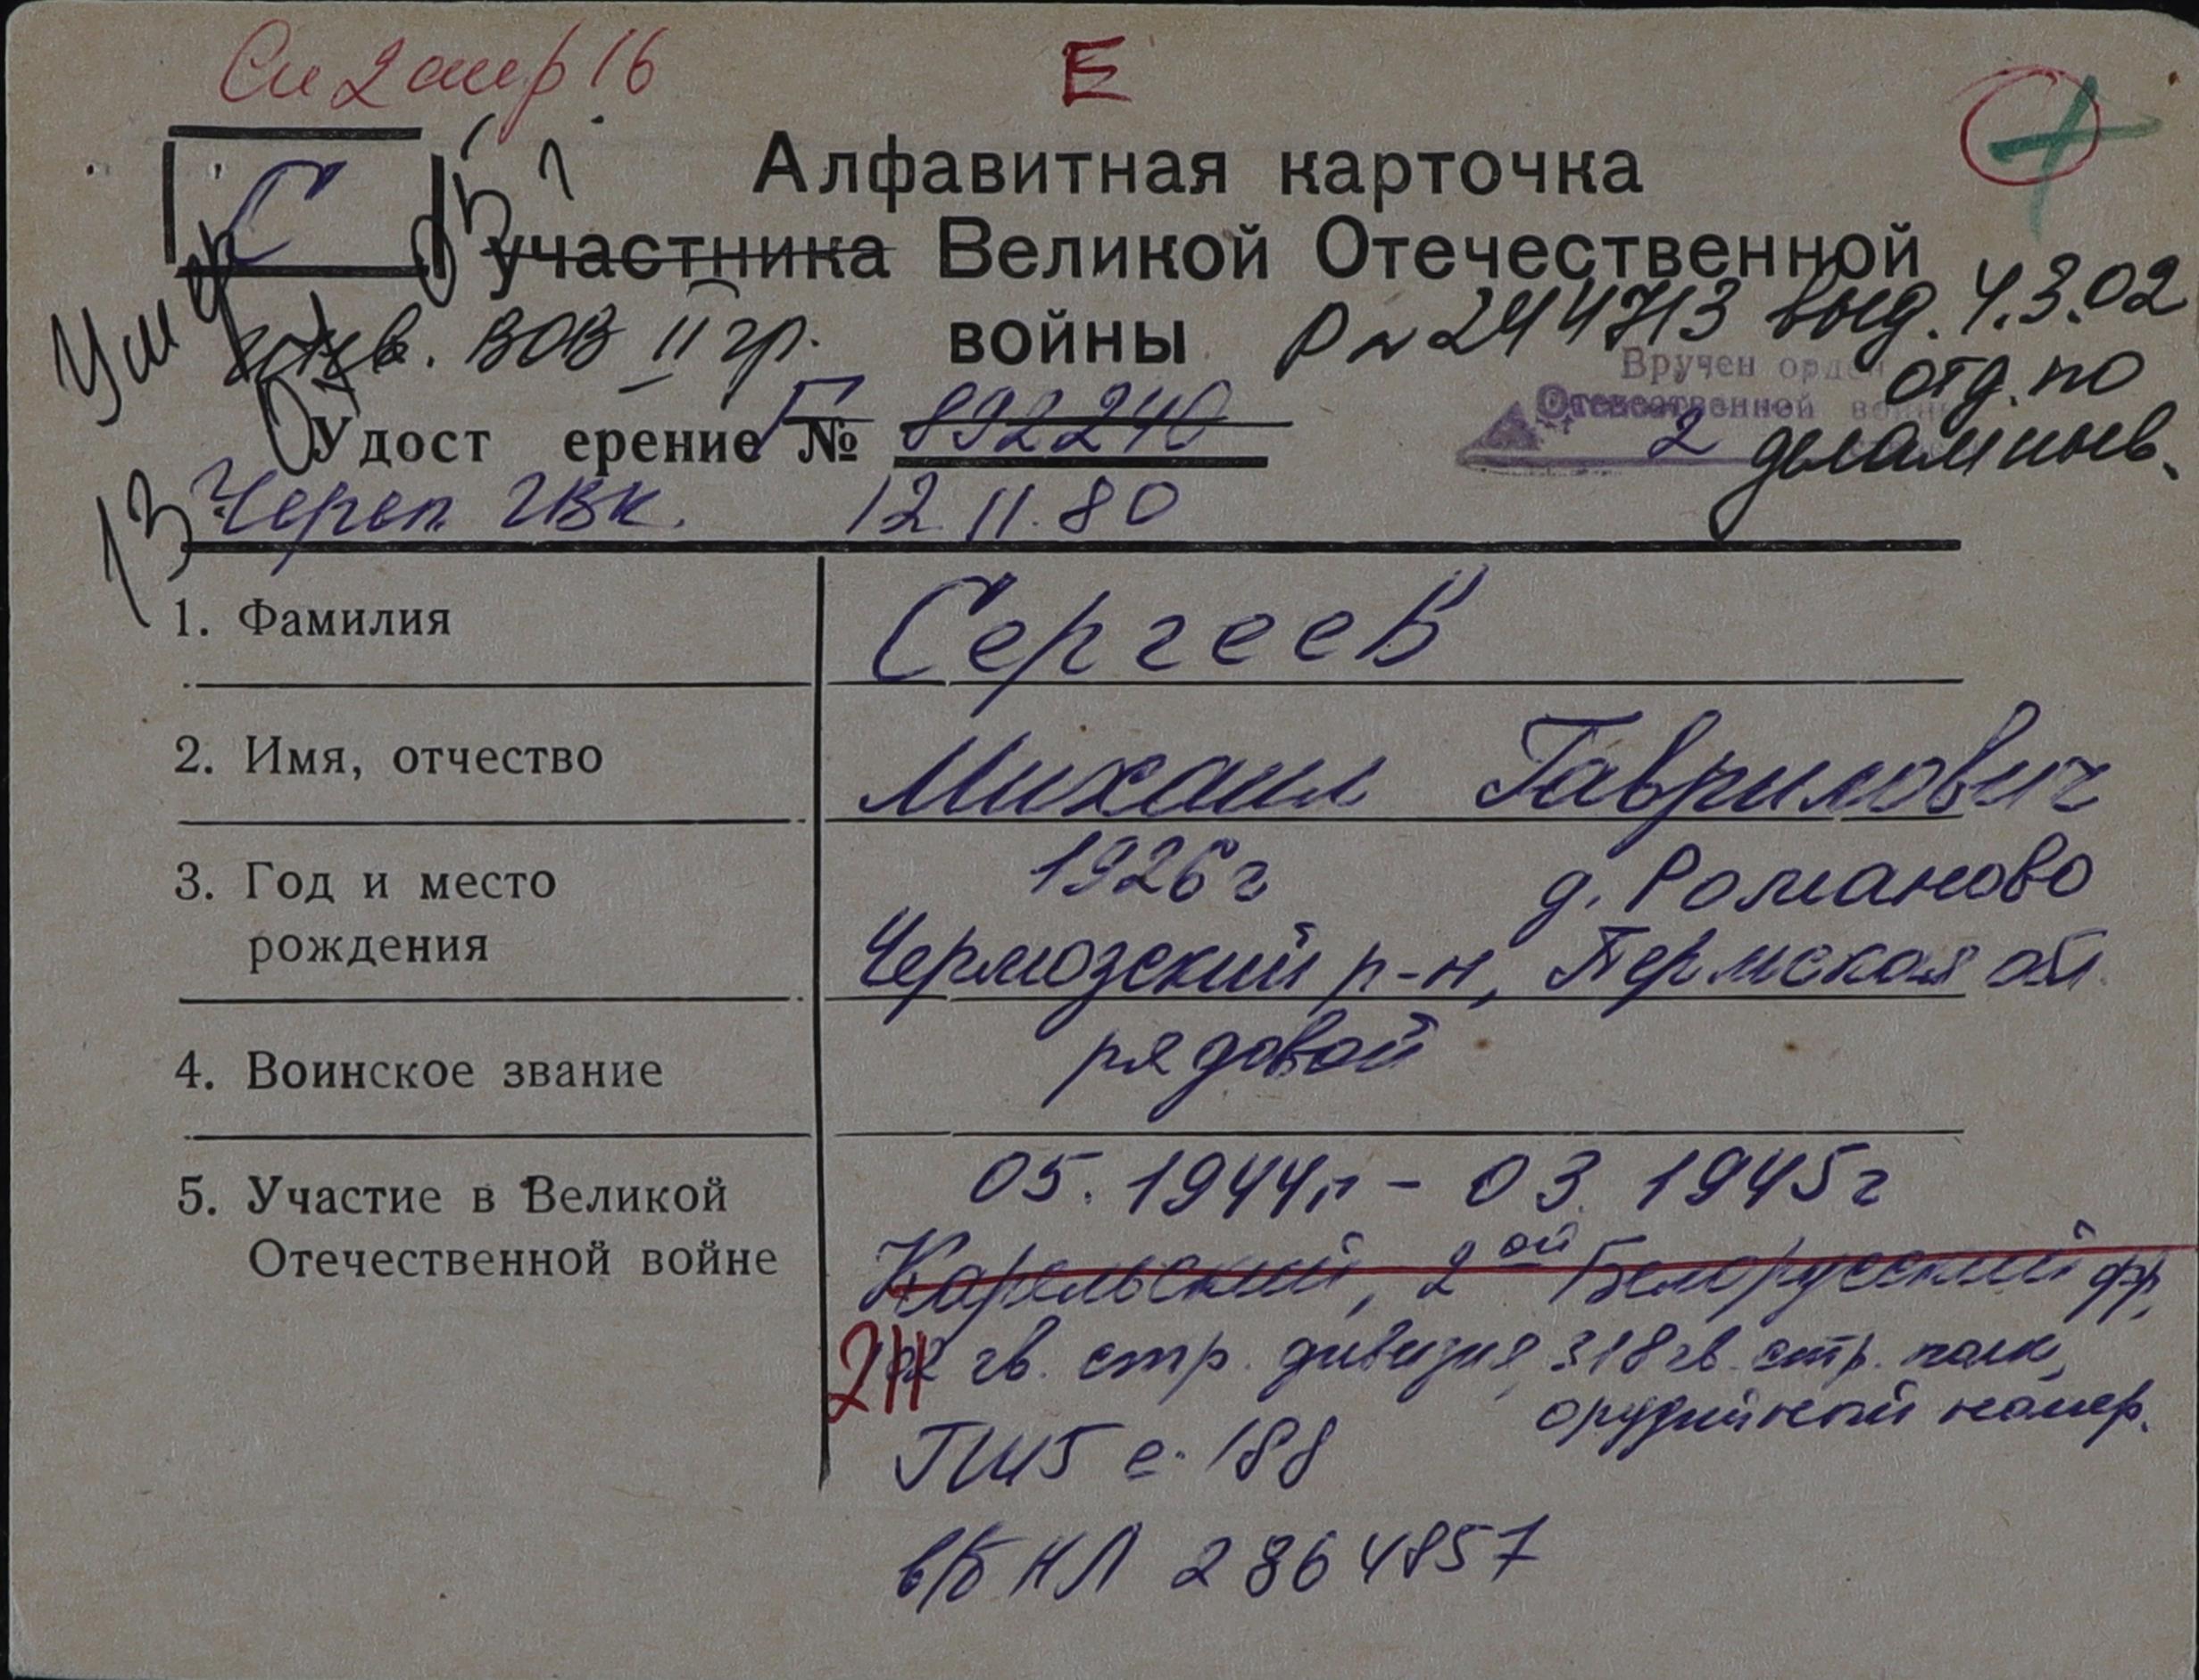 Е
С
Алфавитная карточка
участника Великой Отечественной
войны
инв. ВОВ II гр.
Р № 244713 выд. 4.3.02
отд. по
делам инв.
Вручен орден
Отечественной войны
2
Удост ерение Г № 892240
Череп. ГВК. 12.11.80
13
1. Фамилия
Сергеев
2. Имя, отчество
Михаил Гаврилович
3. Год и место
рождения
1926г д. Романово
Чермозский р-н, Пермская обл.
4. Воинское звание
рядовой
5. Участие в Великой
Отечественной войне
05. 1944г - 03. 1945г
Карельский, 2ой Белорусский фр,
гв. стр. дивизия, 318 гв. стр. полк,
орудийный номер.
2Н
с. 188
в/б НЛ 2864857